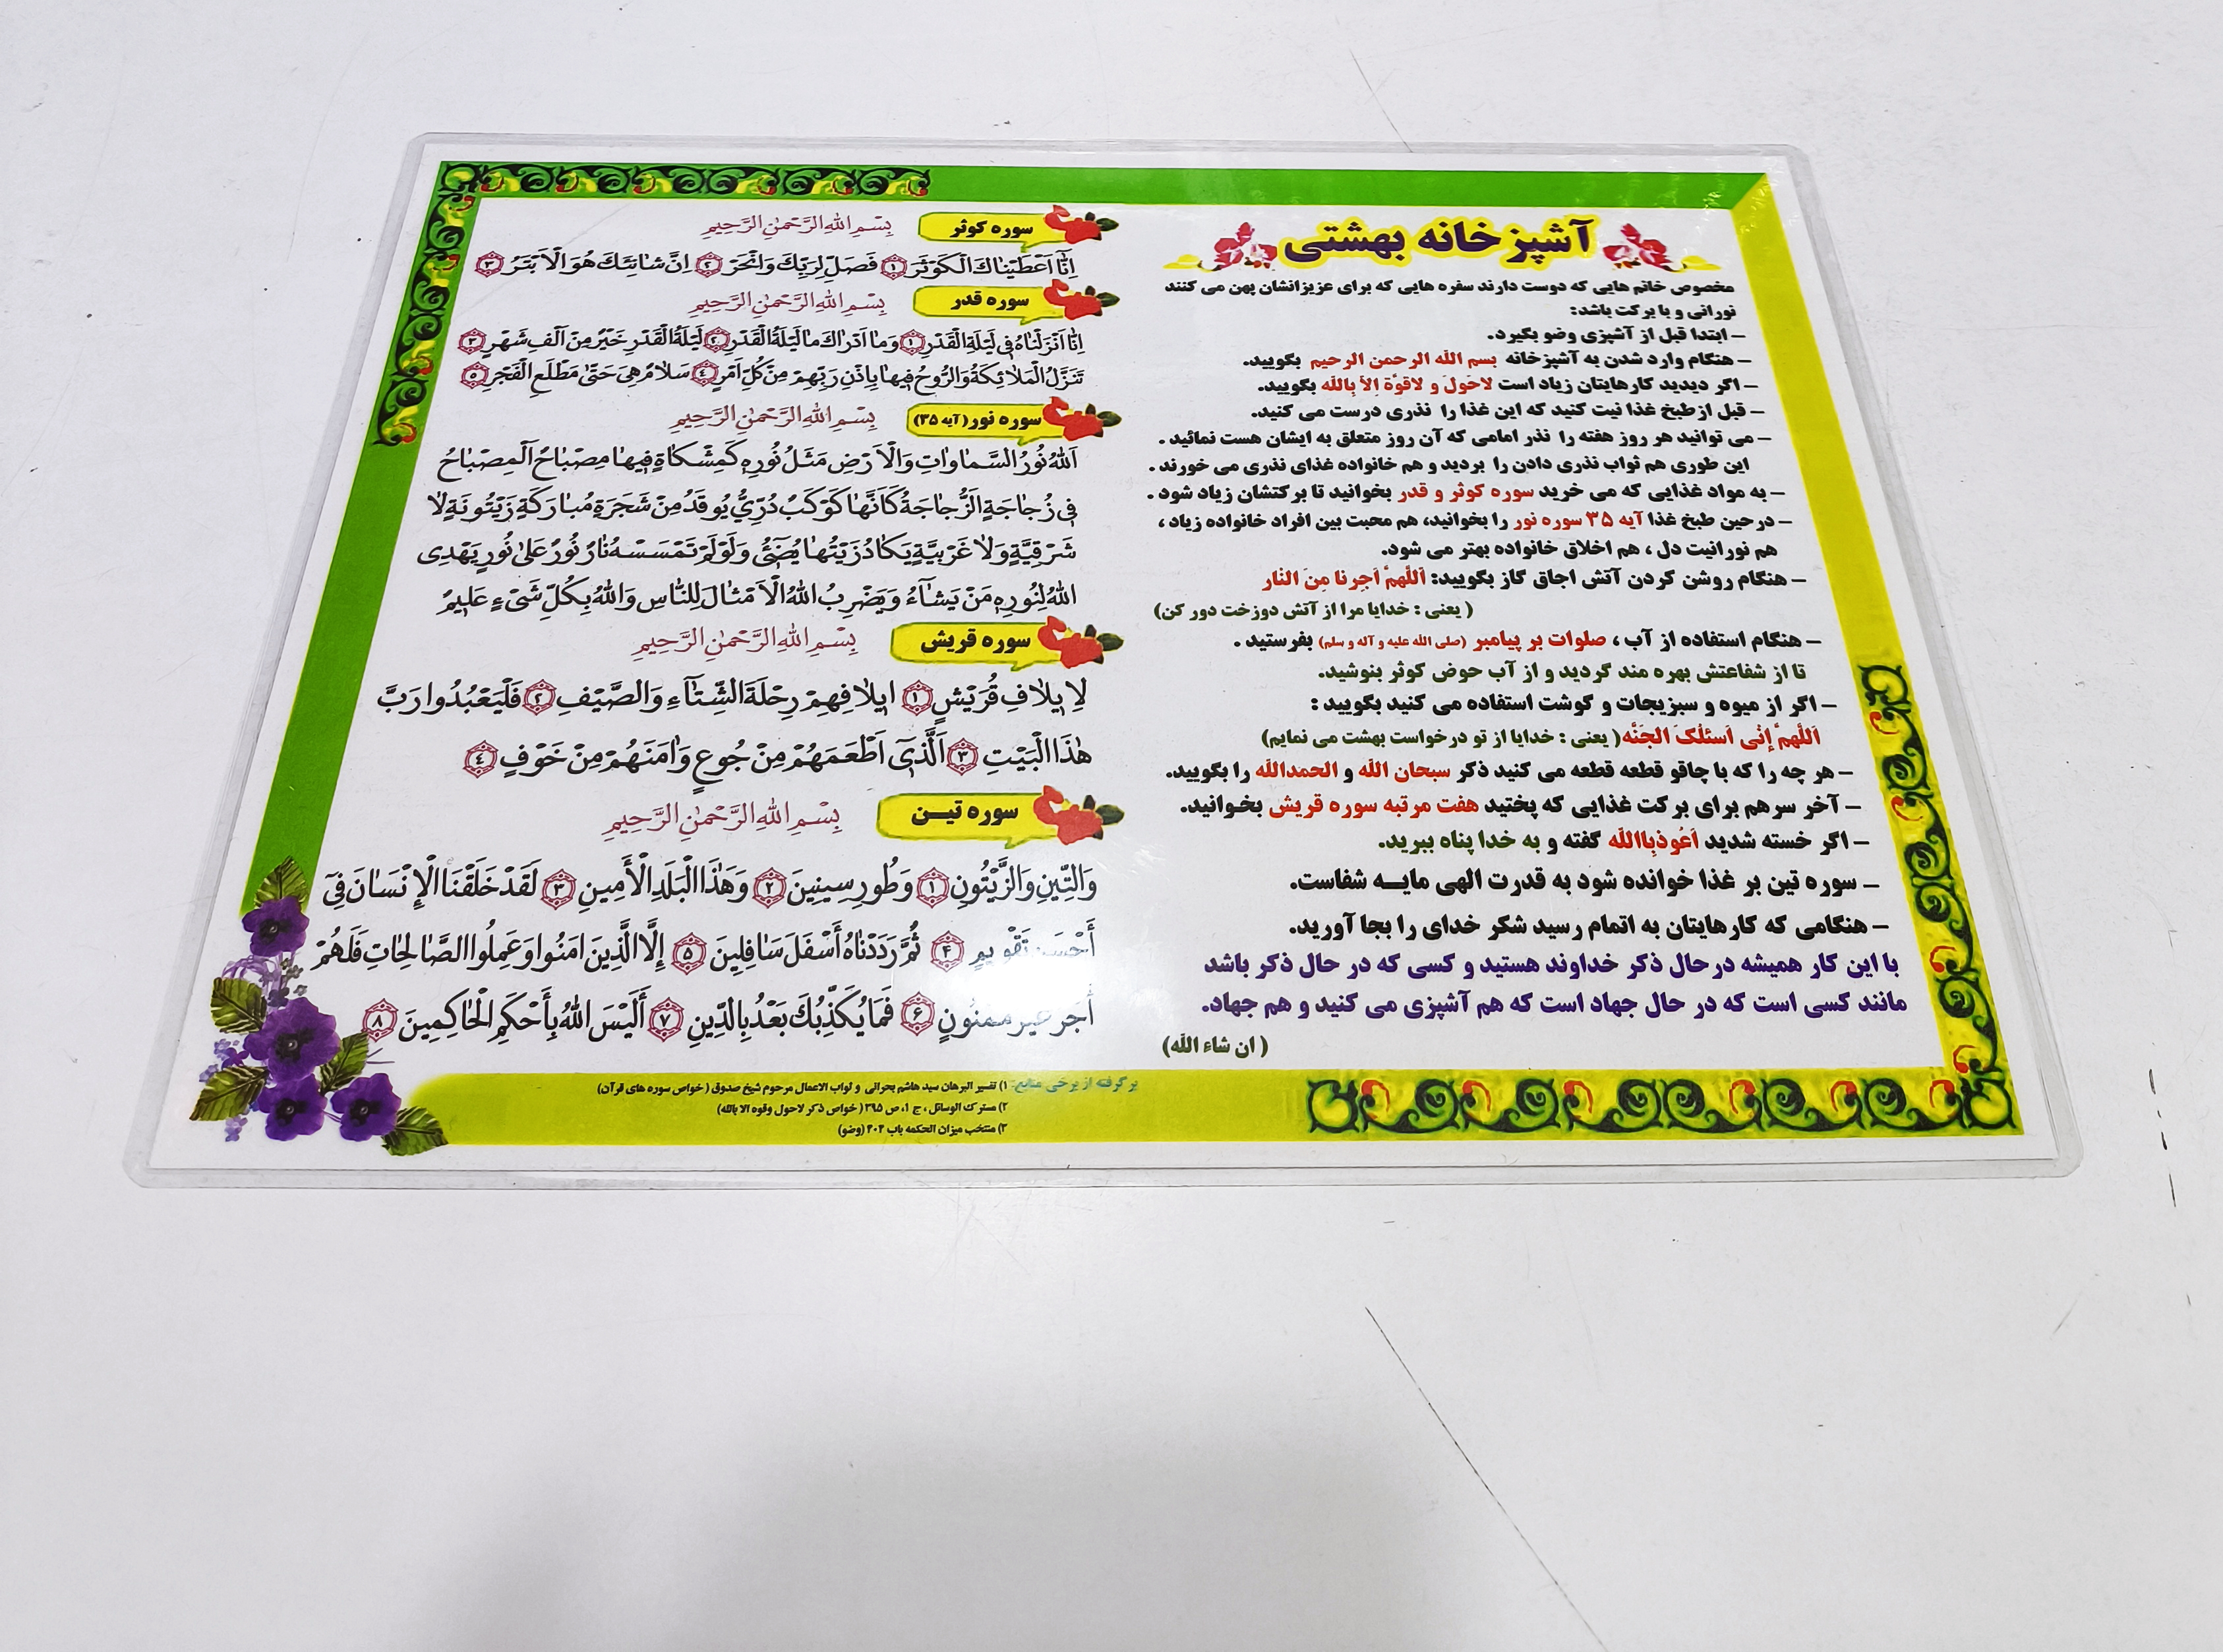 آشپزخانه بهشتی
مخصوص خانم هایی که دوست دارند سفره هایی که برای عزیزانشان پهن می کنند
نورانی و با برکت باشد:
– ابتدا قبل از آشپزی وضو بگیرد.
– هنگام وارد شدن به آشپزخانه بسم الله الرحمن الرحیم بگویید.
– اگر دیدید کارهایتان زیاد است لاحَولَ و لاقوَّة اِلاّ بِاللّه بگویید.
– قبل از طبخ غذا نیت کنید که این غذا را نذری درست می کنید.
– می توانید هر روز هفته را نذر امامی که آن روز متعلق به ایشان هست نمائید .
این طوری هم ثواب نذری دادن را بردید و هم خانواده غذای نذری می خورند .
– به مواد غذایی که می خرید سوره کوثر و قدر بخوانید تا برکتشان زیاد شود .
– درحین طبخ غذا آیه ۳۵ سوره نور را بخوانید، هم محبت بین افراد خانواده زیاد ،
هم نورانیت دل ، هم اخلاق خانواده بهتر می شود.
– هنگام روشن کردن آتش اجاق گاز بگویید: اَللّهمَّ اَجِرنا مِنَ النّار
( یعنی : خدایا مرا از آتش دوزخت دور کن)
– هنگام استفاده از آب ، صلوات بر پیامبر (صلی الله علیه و آله و سلم) بفرستید .
تا از شفاعتش بهره مند گردید و از آب حوض کوثر بنوشید.
– اگر از میوه و سبزیجات و گوشت استفاده می کنید بگویید :
اَللّهمَّ اِنّی اَسئَلُکَ الجَنَّه ( یعنی : خدایا از تو درخواست بهشت می نمایم)
– هر چه را که با چاقو قطعه قطعه می کنید ذکر سبحان الله و الحمدالله را بگویید.
– آخر سرهم برای برکت غذایی که پختید هفت مرتبه سوره قریش بخوانید.
– اگر خسته شدید اَعُوذبِاالله گفته و به خدا پناه ببرید.
– سوره تین بر غذا خوانده شود به قدرت الهی مایـه شفاست.
– هنگامی که کارهایتان به اتمام رسید شکر خدای را بجا آورید.
با این کار همیشه درحال ذکر خداوند هستید و کسی که در حال ذکر باشد
مانند کسی است که در حال جهاد است که هم آشپزی می کنید و هم جهاد.
( ان شاء الله)
سوره کوثر بِسْمِ اللهِ الرَّحْمٰنِ الرَّحِيمِ
اِنّٰا اَعْطَيْنٰاكَ الْكَوْثَرَ ۱ فَصَلِّ لِرَبِّكَ وَانْحَرْ ۲ اِنَّ شٰانِئَكَ هُوَ الْاَبْتَرُ ۳
سوره قدر بِسْمِ اللهِ الرَّحْمٰنِ الرَّحِيمِ
اِنّٰا اَنْزَلْنٰاهُ فِی لَيْلَةِ الْقَدْرِ ۱ وَمٰا اَدْرٰاكَ مٰا لَيْلَةُ الْقَدْرِ ۲ لَيْلَةُ الْقَدْرِ خَيْرٌ مِنْ اَلْفِ شَهْرٍ ۳
تَنَزَّلُ الْمَلٰائِكَةُ وَالرُّوحُ فِيهٰا بِاِذْنِ رَبِّهِمْ مِنْ كُلِّ اَمْرٍ ٤ سَلٰامٌ هِیَ حَتّٰی مَطْلَعِ الْفَجْرِ ۵
سوره نور (آیه ۳۵) بِسْمِ اللهِ الرَّحْمٰنِ الرَّحِيمِ
اَللهُ نُورُ السَّمٰاوٰاتِ وَالْاَرْضِ مَثَلُ نُورِهِ كَمِشْكٰاةٍ فِيهٰا مِصْبٰاحٌ اَلْمِصْبٰاحُ
فِی زُجٰاجَةٍ اَلزُّجٰاجَةُ كَاَنَّهٰا كَوْكَبٌ دُرِّیٌّ يُوقَدُ مِنْ شَجَرَةٍ مُبٰارَكَةٍ زَيْتُونَةٍ لٰا
شَرْقِيَّةٍ وَلٰا غَرْبِيَّةٍ يَكٰادُ زَيْتُهٰا يُضِٓیءُ وَلَوْ لَمْ تَمْسَسْهُ نٰارٌ نُورٌ عَلٰی نُورٍ يَهْدِی
اللهُ لِنُورِهِ مَنْ يَشٰٓاءُ وَيَضْرِبُ اللهُ الْاَمْثٰالَ لِلنّٰاسِ وَاللهُ بِكُلِّ شَیْءٍ عَلِيمٌ
سوره قریش بِسْمِ اللهِ الرَّحْمٰنِ الرَّحِيمِ
لِايلٰافِ قُرَيْشٍ ۱ ايلٰافِهِمْ رِحْلَةَ الشِّتٰٓاءِ وَالصَّيْفِ ۲ فَلْيَعْبُدُوا رَبَّ
هٰذَا الْبَيْتِ ۳ اَلَّذِی اَطْعَمَهُمْ مِنْ جُوعٍ وَاٰمَنَهُمْ مِنْ خَوْفٍ ٤
سوره تیـن بِسْمِ اللهِ الرَّحْمٰنِ الرَّحِيمِ
وَالتِّينِ وَالزَّيْتُونِ ۱ وَطُورِ سِينِينَ ۲ وَهٰذَا الْبَلَدِ الْأَمِينِ ۳ لَقَدْ خَلَقْنَا الْإِنْسَانَ فِیٓ
أَحْسَنِ تَقْوِيمٍ ۴ ثُمَّ رَدَدْنَاهُ أَسْفَلَ سَافِلِينَ ۵ إِلَّا الَّذِينَ اٰمَنُوا وَعَمِلُوا الصَّالِحَاتِ فَلَهُمْ
أَجْرٌ غَيْرُ مَمْنُونٍ ۶ فَمَا يُكَذِّبُكَ بَعْدُ بِالدِّينِ ۷ أَلَيْسَ اللهُ بِأَحْكَمِ الْحَاكِمِينَ ۸
برگرفته از برخی منابع: ۱) تفسیر البرهان سید هاشم بحرانی و ثواب الاعمال مرحوم شیخ صدوق ( خواص سوره های قرآن)
۲) مسترک الوسائل ، ج ۱، ص ۳۹۵ ( خواص ذکر لاحول وقوه الا بالله)
۳) منتخب میزان الحکمه باب ۴۰۴ (وضو)